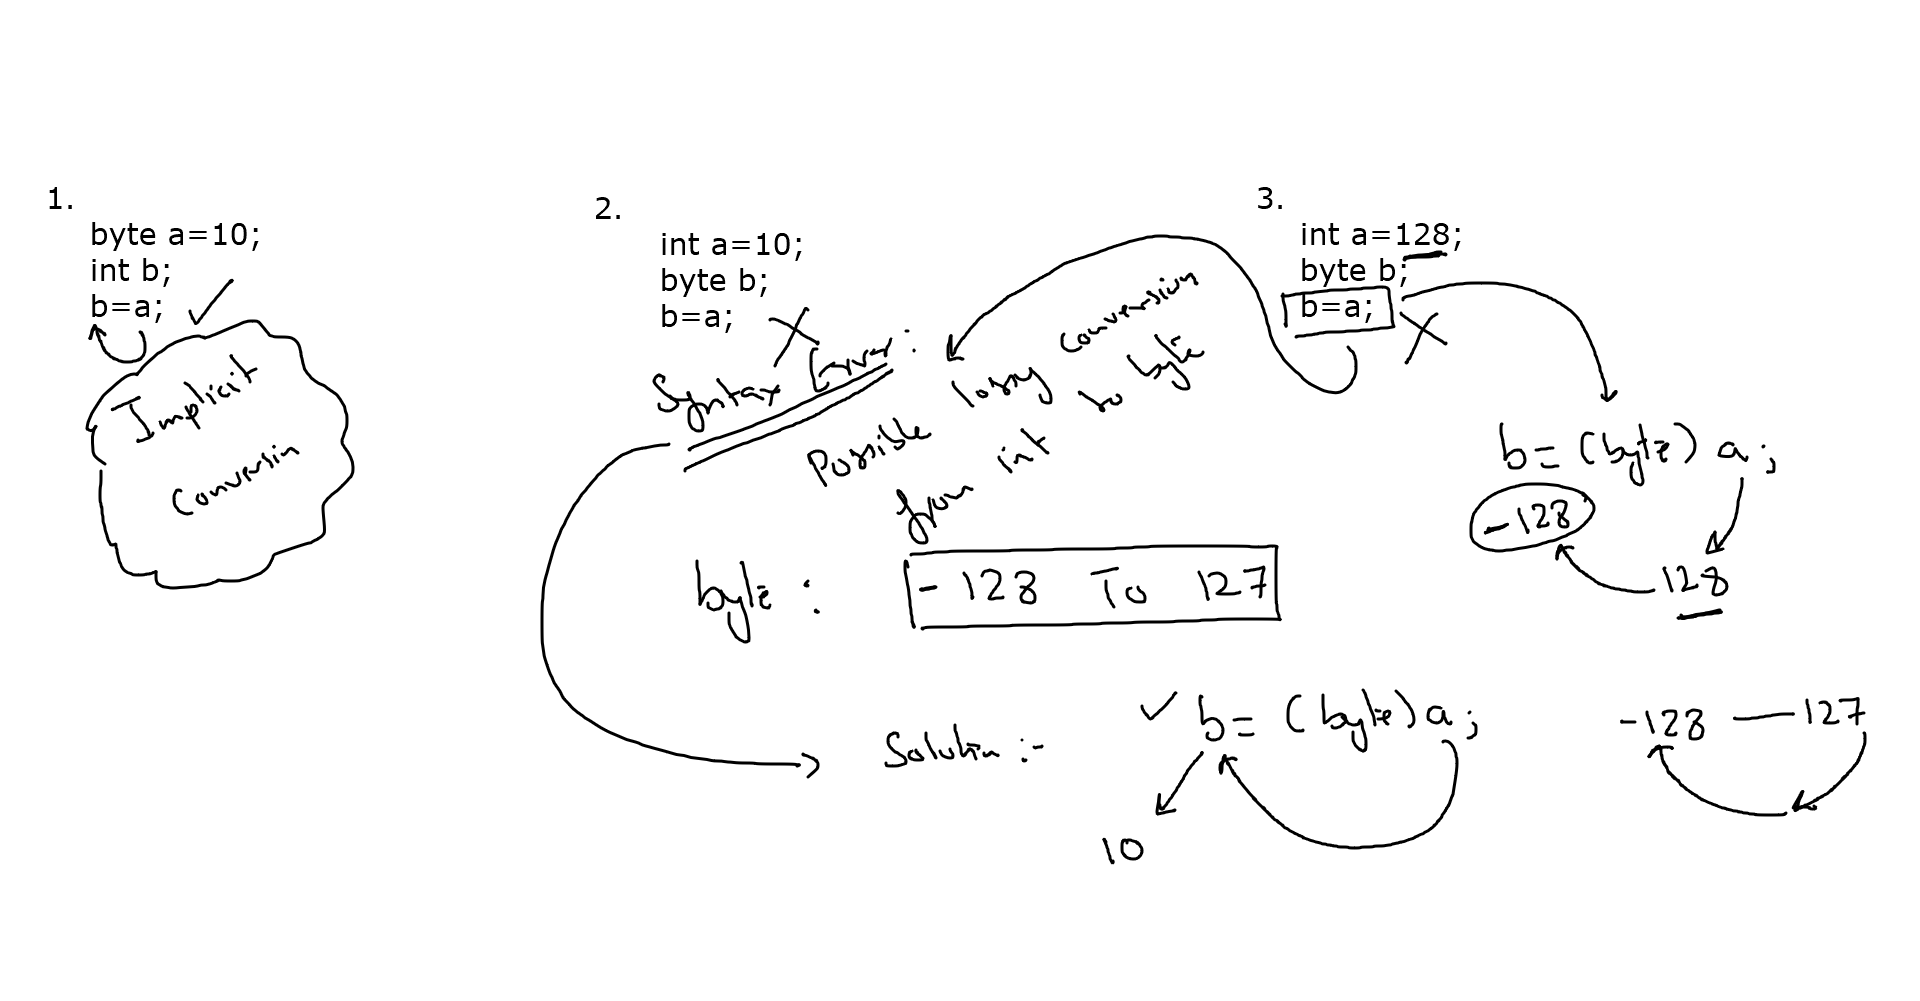 1.
byte a=10;
int b;
b=a;
Implicit
Conversin
2.
int a=10;
byte b;
b=a;
Syntax Error:
Possible lossy conversion
from int to byte
byte :
-128 To 127
Solution :-
b= (byte) a;
10
3.
int a=128;
byte b;
b=a;
b= (byte) a;
-128
128
-128 — 127